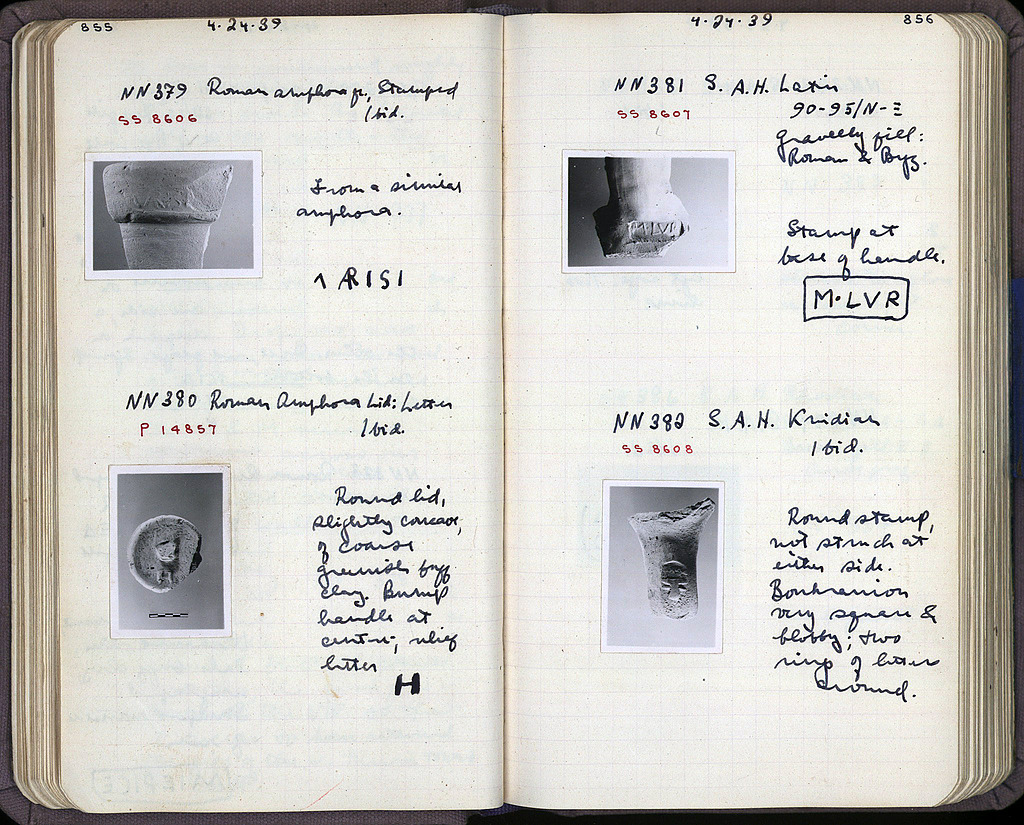 855
4-24-39
NN 379 Roman amphora fr., Stamped
SS 8606
Ibid.
From a similar
amphora.
ARISI
NN 380 Roman Amphora Lid: Letter
P 14857
Ibid.
Round lid,
slightly concave,
of coarse
greenish buff
clay. Bump
handle at
center; relief
letter
H
4-24-39
856
NN 381 S. A. H. Latin
SS 8607
90-95/N-Ξ
gravelly fill:
Roman & Byz.
Stamp at
base of handle.
M·LVR
M·LVR
NN 382 S. A. H. Knidian
SS 8608
Ibid.
Round stamp,
not struck at
either side.
Boukranion
very square &
blobby; two
rings of letters
around.